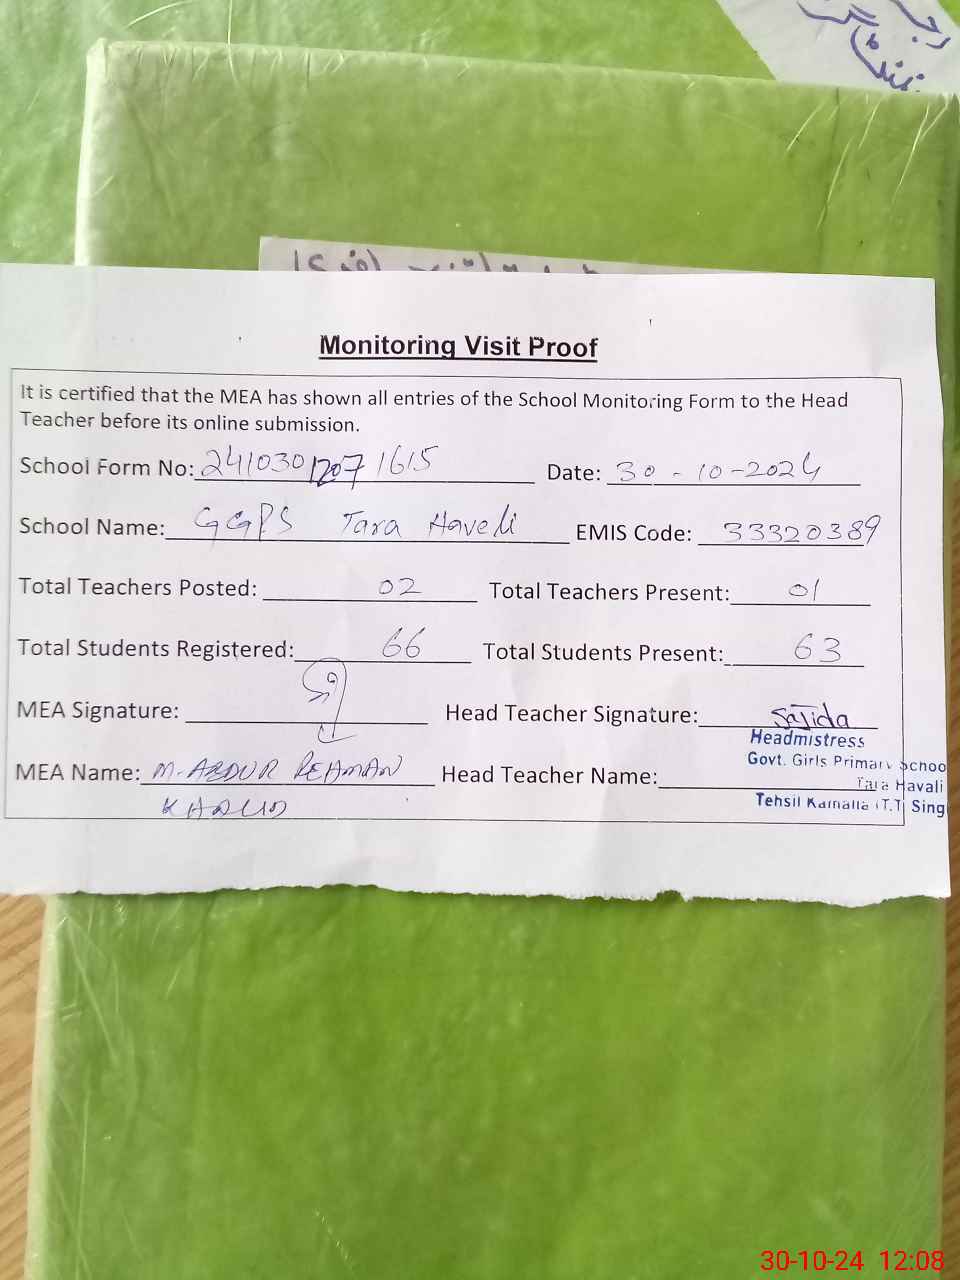 Monitoring Visit Proof
It is certified that the MEA has shown all entries of the School Monitoring Form to the Head
Teacher before its online submission.
School Form No: 24103012071615 Date: 30-10-2024
School Name: GGPS Tara Haveli EMIS Code: 33320389
Total Teachers Posted: 02 Total Teachers Present: 01
Total Students Registered: 66 Total Students Present: 63
MEA Signature: Head Teacher Signature: Sajida
Headmistress
Govt. Girls Primary Schoo
MEA Name: M. ABDUR REHMAN Head Teacher Name:
Tara Havali
KHALID
Tehsil Kamalia (T.T Sing
30-10-24 12:08